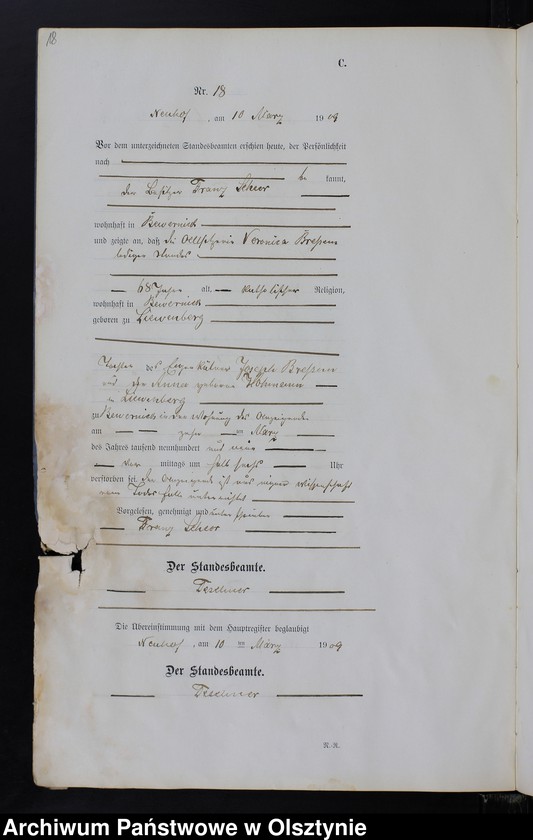 18
C.
Nr. 18
Neuhof, am 10 März 1909
Vor dem unterzeichneten Standesbeamten erschien heute, der Persönlichkeit
nach
be kannt,
der Besitzer Franz Scheer
wohnhaft in Bewernick
und zeigte an, daß die Altsitzerin Veronica Bressem
ledigen Standes
68 Jahre alt, katholischer Religion,
wohnhaft in Bewernick
geboren zu Liewenberg
Tochter des Joseph Bressem
und der Anna geborene Hohmann
in Liewenberg
zu Bewernick in der Wohnung des Anzeigenden
am zehn ten März
des Jahres tausend neunhundert und neun
vor mittags um halb sechs Uhr
verstorben sei. Der Anzeigende ist aus eigener Wissenschaft
vom Todesfalle unterrichtet
Vorgelesen, genehmigt und unterschrieben
Franz Scheer
Der Standesbeamte.
Teschner
Die Übereinstimmung mit dem Hauptregister beglaubigt
Neuhof, am 10 ten März 1909
Der Standesbeamte.
Teschner
N.-R.
Archiwum Państwowe w Olsztynie